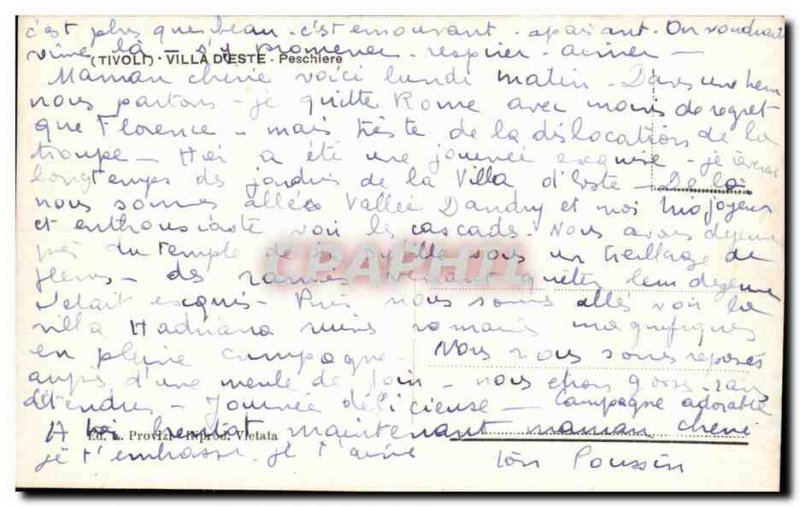 c'est plus que beau - c'est émouvant - apaisant - On voudrait
vivre là - s'y promener - respirer - aimer -
(TIVOLI) - VILLA D'ESTE - Peschiere
Maman chérie voici lundi matin - Dans une heure
nous partons - je quitte Rome avec moins de regret
que Florence - mais triste de la dislocation de la
troupe - Hier a été une journée exquise - je rêverai
longtemps des jardins de la Villa d'Este - De là
nous sommes allées Vallée et moi joyeux
et enthousiaste voir les cascades. Nous avons déjeuné
près du temple de la sous un treillage de
fleurs - des
c'était exquis - Puis nous sommes allés voir la
villa Hadriana ruines romaines magnifiques
en pleine campagne - Nous nous sommes reposés
auprès d'une meule de foin - nous étions
détendues - Journée délicieuse - Campagne adorable
A bientôt maintenant maman chérie
Ed. A. Provizi - Riprod. Vietata
je t'embrasse je t'aime ton Poussin
CPAPHIL